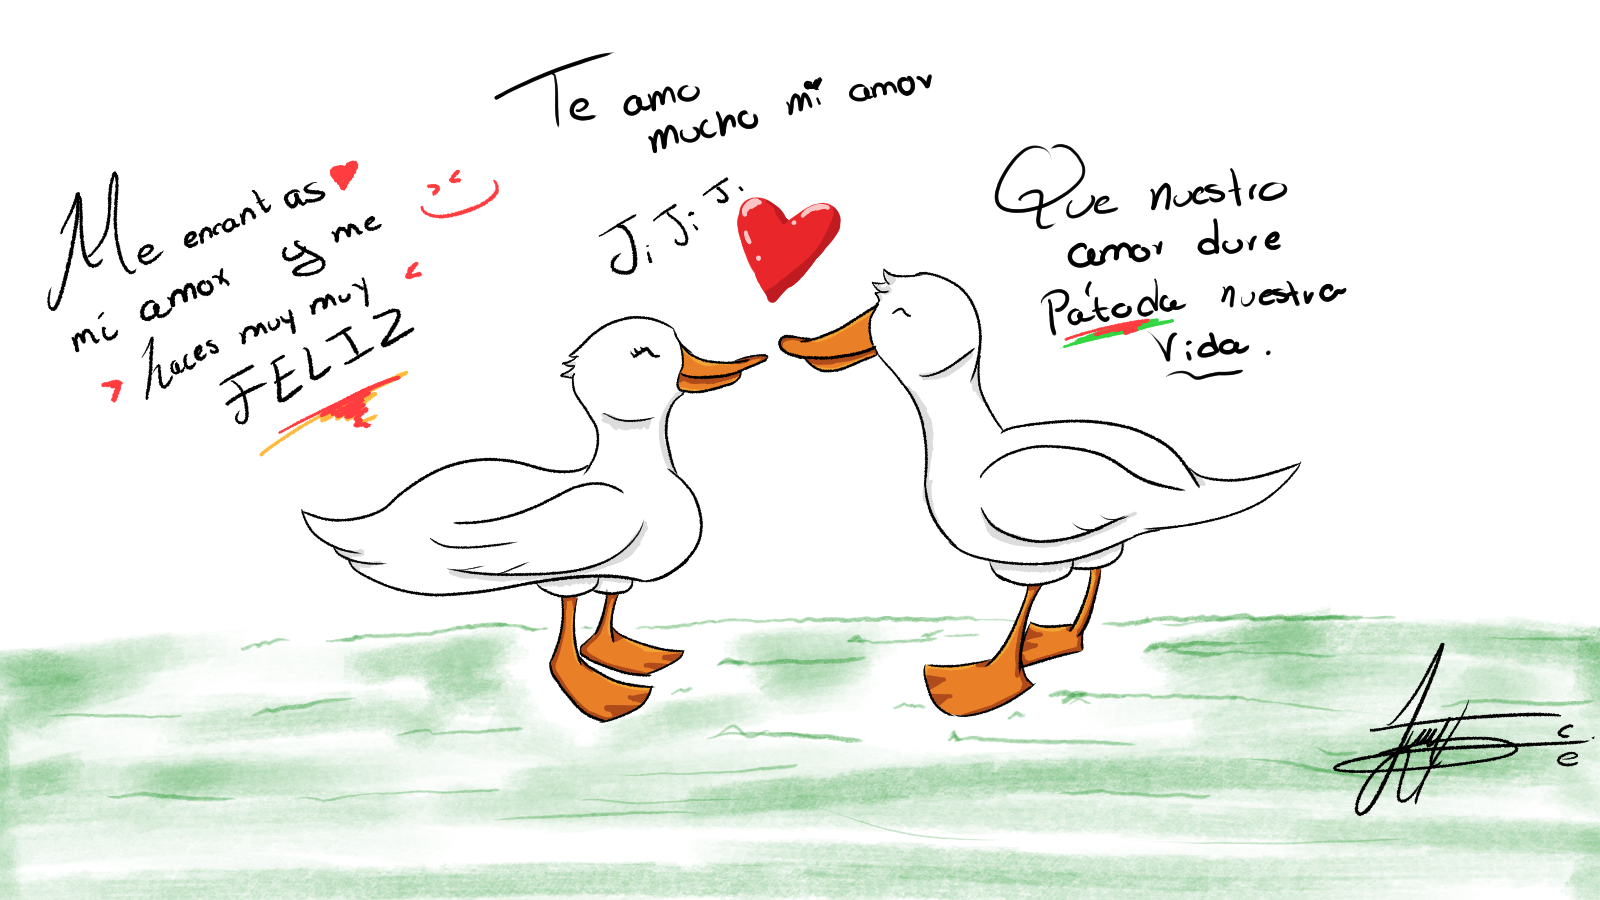 Te amo
mucho mi amor
Me encantas
mi amor y me
haces muy muy
FELIZ
Ji Ji Ji.
Que nuestro
amor dure
Pa'toda nuestra
vida.
c.
e